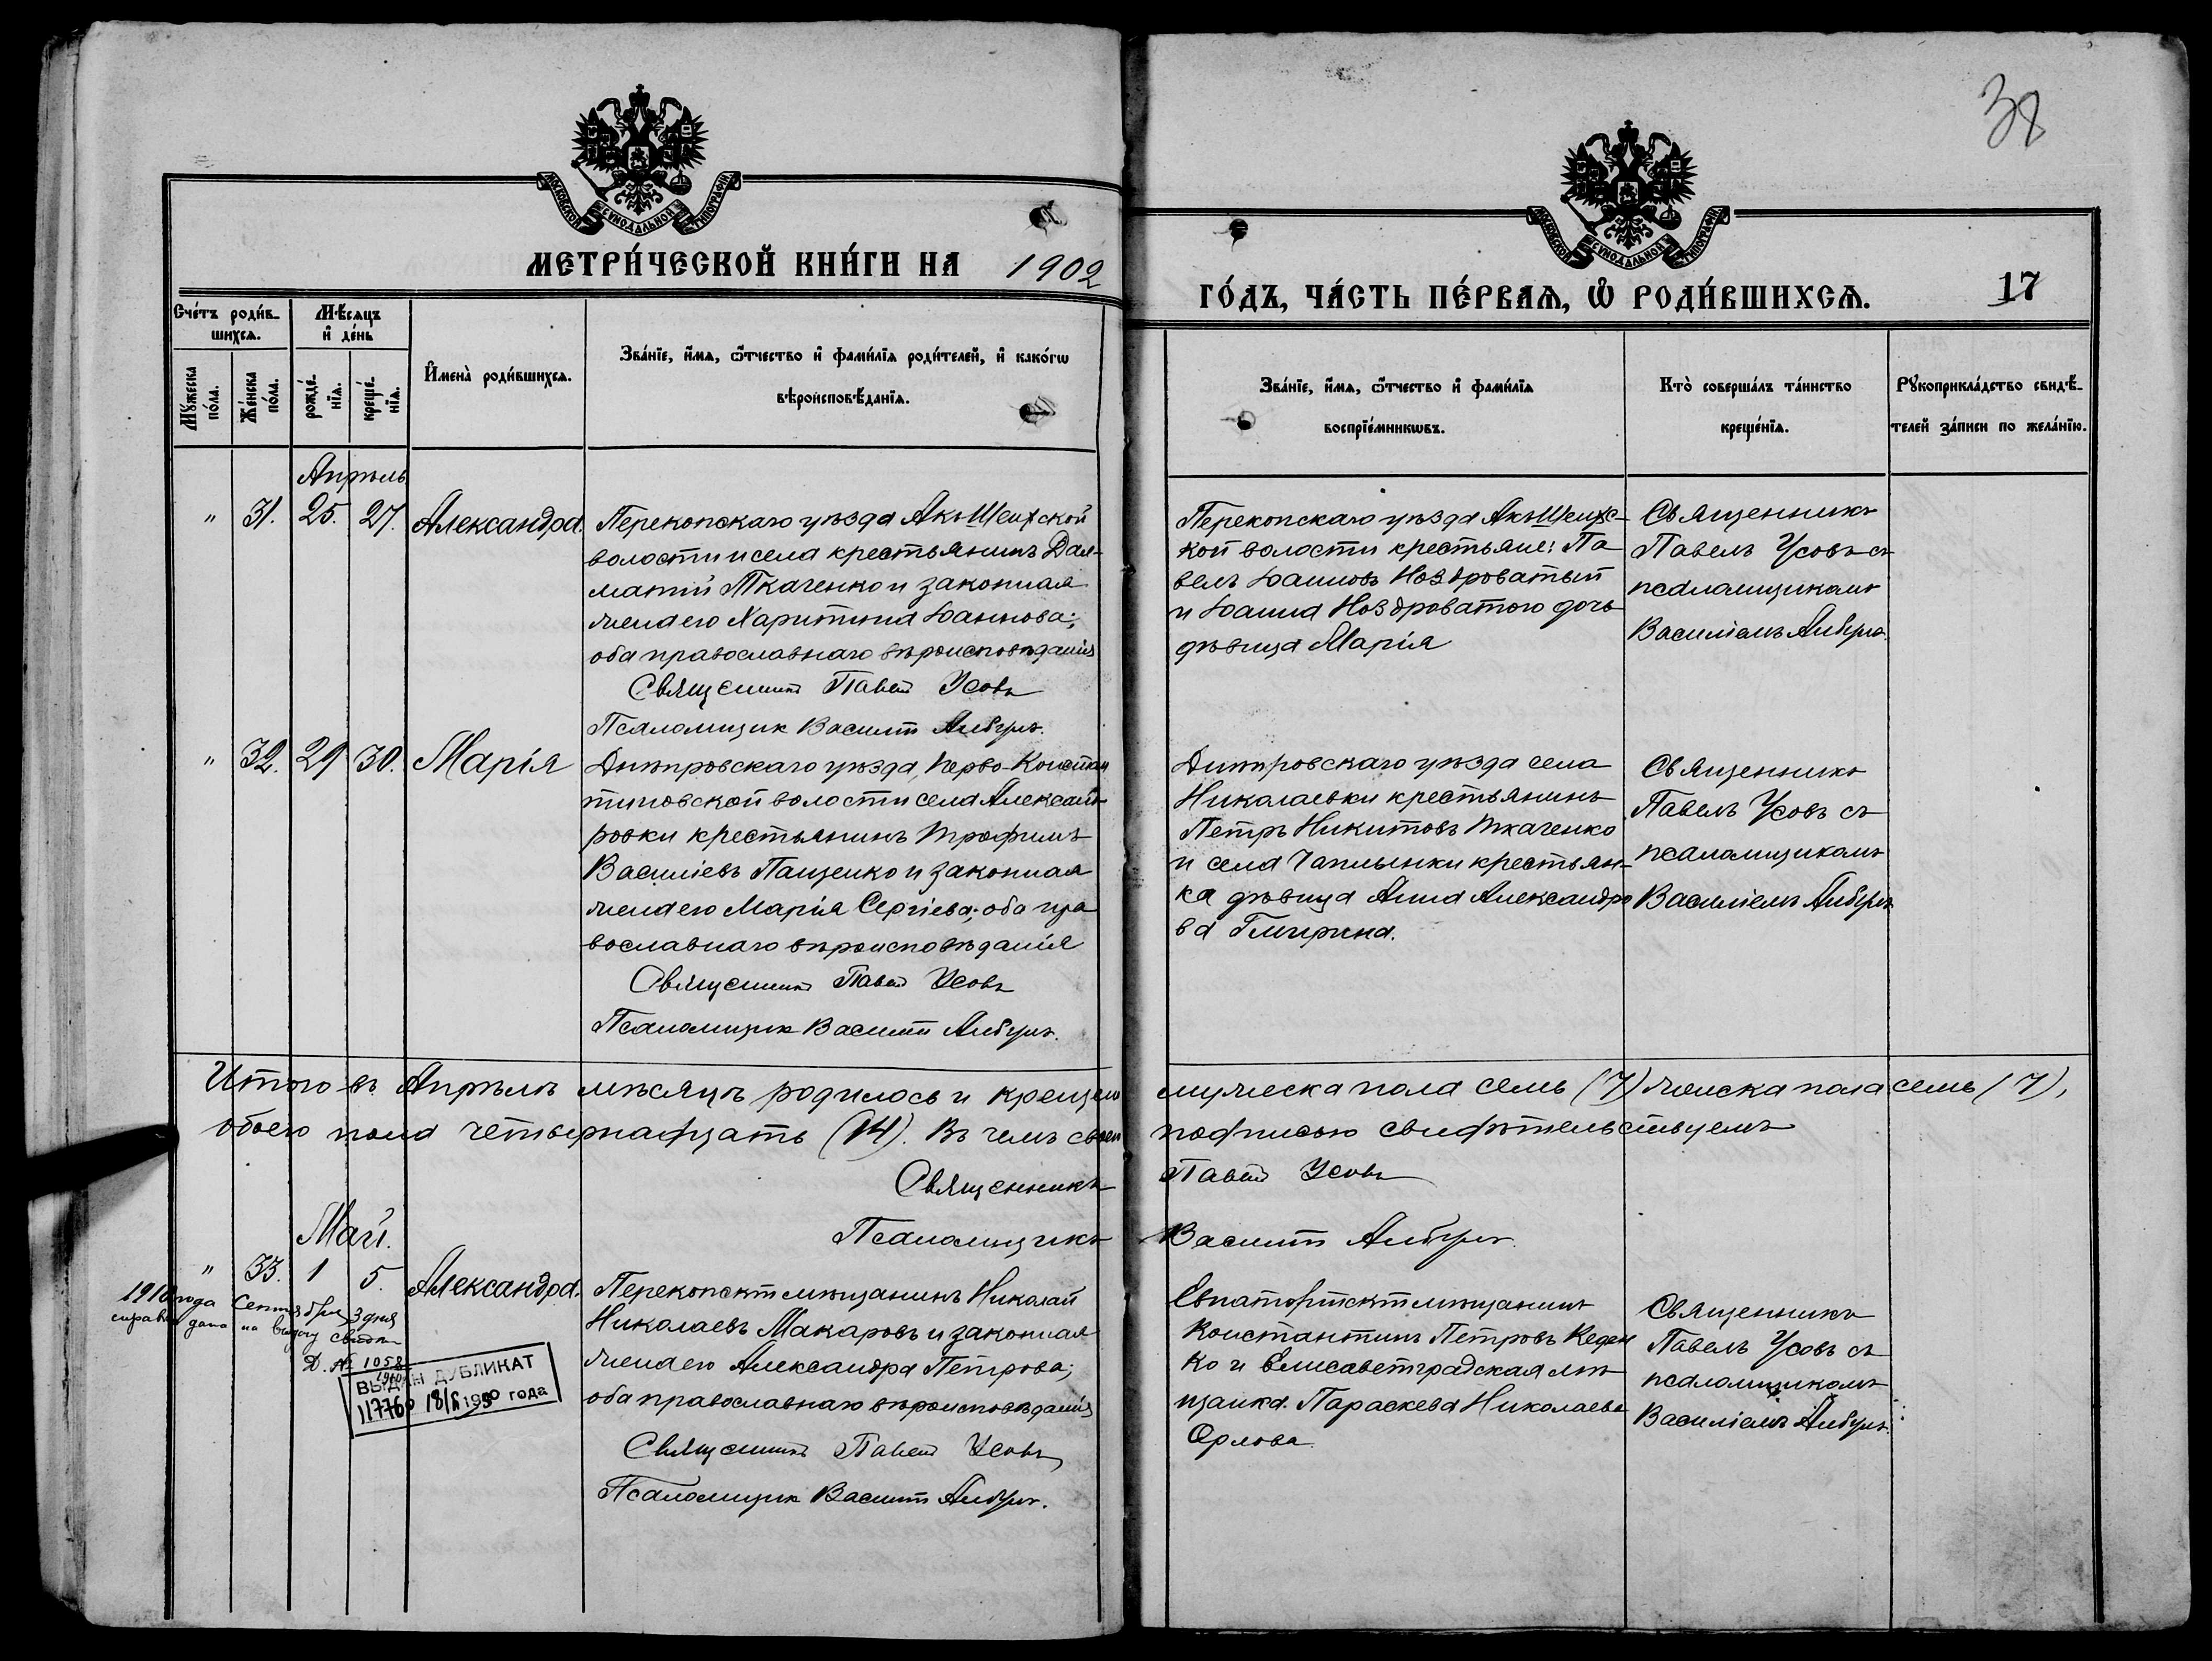 38
МОСКОВСКОЙ СУНОДАЛЬНОЙ ТИПОГРАФІИ
МЕТРИ́ЧЕСКОЙ КНИ́ГИ НА 1902
МОСКОВСКОЙ СУНОДАЛЬНОЙ ТИПОГРАФІИ
ГО́ДЪ, ЧА́СТЬ ПЕ́РВАѦ, Ѡ РОДИ́ВШИХСѦ. 17
Сче́тъ роди́в-
шихсѧ.
Мѣ́сѧцъ
и҆ де́нь
Мꙋ́жеска
по́ла.
Же́нска
по́ла.
рожде́-
нїѧ.
креще́-
нїѧ.
И҆мена̀ роди́вшихсѧ.
Зва́нїе, и҆́мѧ, ѻ҆́тчество и҆ фами́лїѧ роди́телей, и҆ како́гѡ
вѣроисповѣ́данїѧ.
Зва́нїе, и҆́мѧ, ѻ҆́тчество и҆ фами́лїѧ
воспрїе́мникѡвъ.
Кто̀ соверша́лъ та́инство
креще́нїѧ.
Рꙋкоприкла́дство свидѣ́-
телей за́писи по жела́нїю.
Апрѣль
" 31. 25. 27. Александра.
Перекопскаго уѣзда Акъ-Шеихской
волости и села крестьянинъ Дал-
матій Ткаченко и законная
жена его Харитина Іоаннова;
оба православнаго вѣроисповѣданія
Священникъ Павелъ Усовъ
Псаломщик Василій
Перекопскаго уѣзда Акъ-Шеихс-
кой волости крестьяне: Па
велъ Іоанновъ Ноздроватый
и Іоанна Ноздроватого дочь
дѣвица Марія
Священникъ
Павелъ Усовъ съ
псаломщикомъ
Василіемъ
" 32. 29 30. Марія
Днѣпровскаго уѣзда, Перво-Констан
тиновской волости села Александ-
ровки крестьянинъ Трофимъ
Василіевъ Пащенко и законная
жена его Марія Сергіева; оба пра
вославнаго вѣроисповѣданія
Священникъ Павелъ Усовъ
Псаломщик Василій
Днѣпровскаго уѣзда села
Николаевки крестьянинъ
Петръ Никитовъ Ткаченко
и села Чаплынки крестьян-
ка дѣвица Анна Александро
ва
Священникъ
Павелъ Усовъ съ
псаломщикомъ
Василіемъ
Итого въ Апрѣлѣ мѣсяцѣ родилось и крещено мужеска пола семь (7) женска пола семь (7),
обоего пола четырнадцать (14). Въ чемъ своей подписью свидѣтельствуемъ
Священникъ Павелъ Усовъ
Псаломщикъ Василій
Май.
" 33. 1 5. Александра.
Перекопскій мѣщанинъ Николай
Николаевъ Макаровъ и законная
жена его Александра Петрова;
оба православнаго вѣроисповѣданія
Священникъ Павелъ Усовъ
Псаломщик Василій
Евпаторійскій мѣщанинъ
Константинъ Петровъ
ко и Елисаветградская мѣ
щанка Параскева Николаева
Орлова.
Священникъ
Павелъ Усовъ съ
псаломщикомъ
Василіемъ
1910 года Сентября 3 дня
справка дана на выдачу
Д. № 1058
1910
ВЫДАН ДУБЛИКАТ
117760 18/ 1950 года